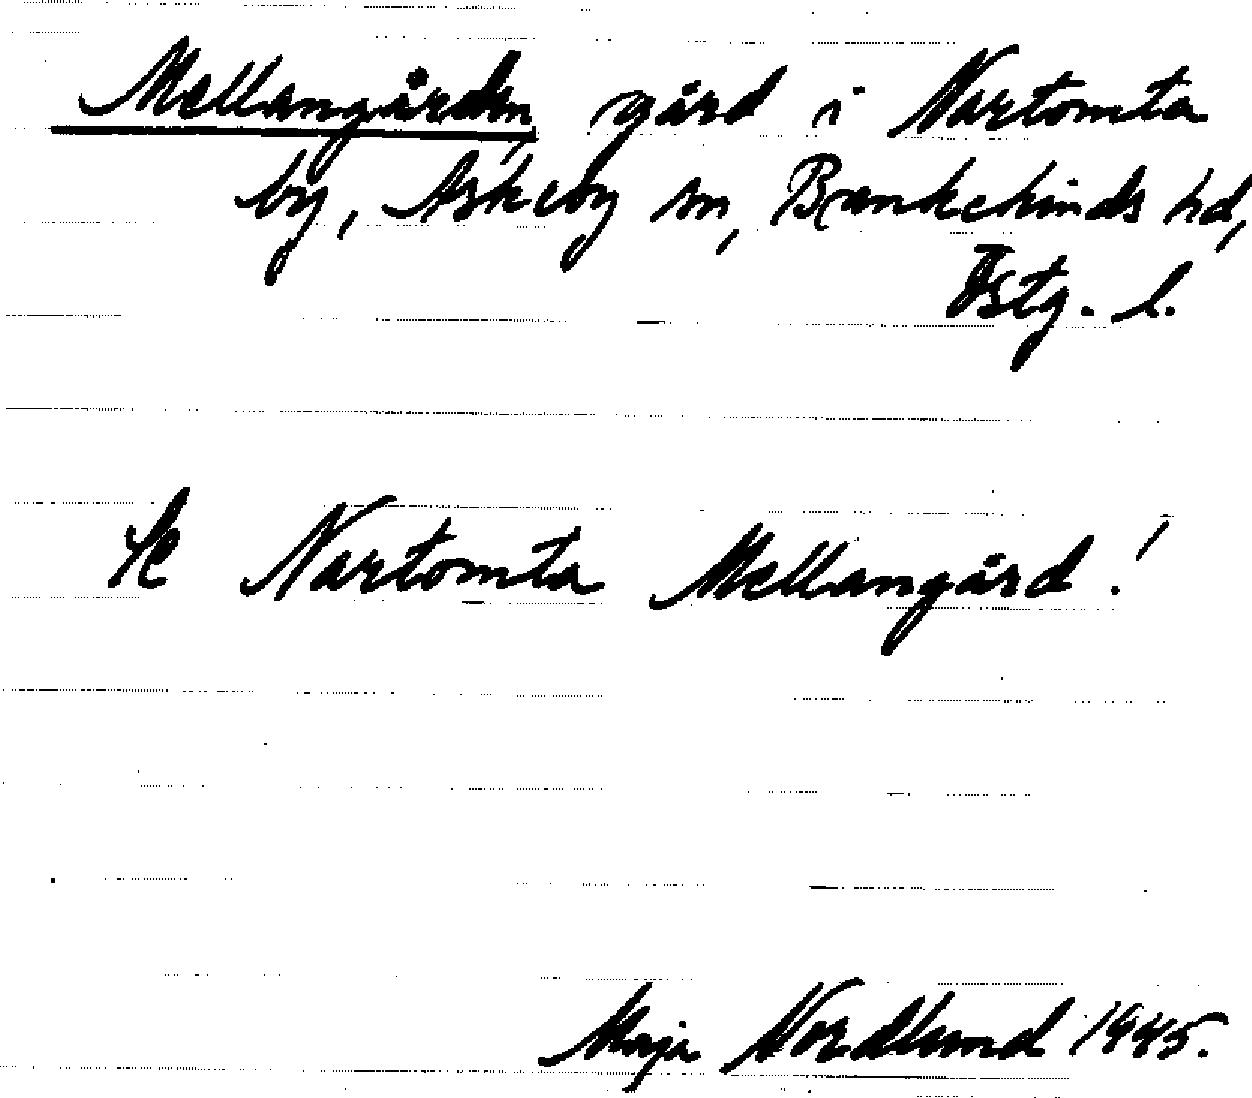 Mellangården, gård i Nartomta
by, Askeby sn, Bankekinds hd,
Östg. l.
Se Nartomta Mellangård!
Maja Nordlund 1945.